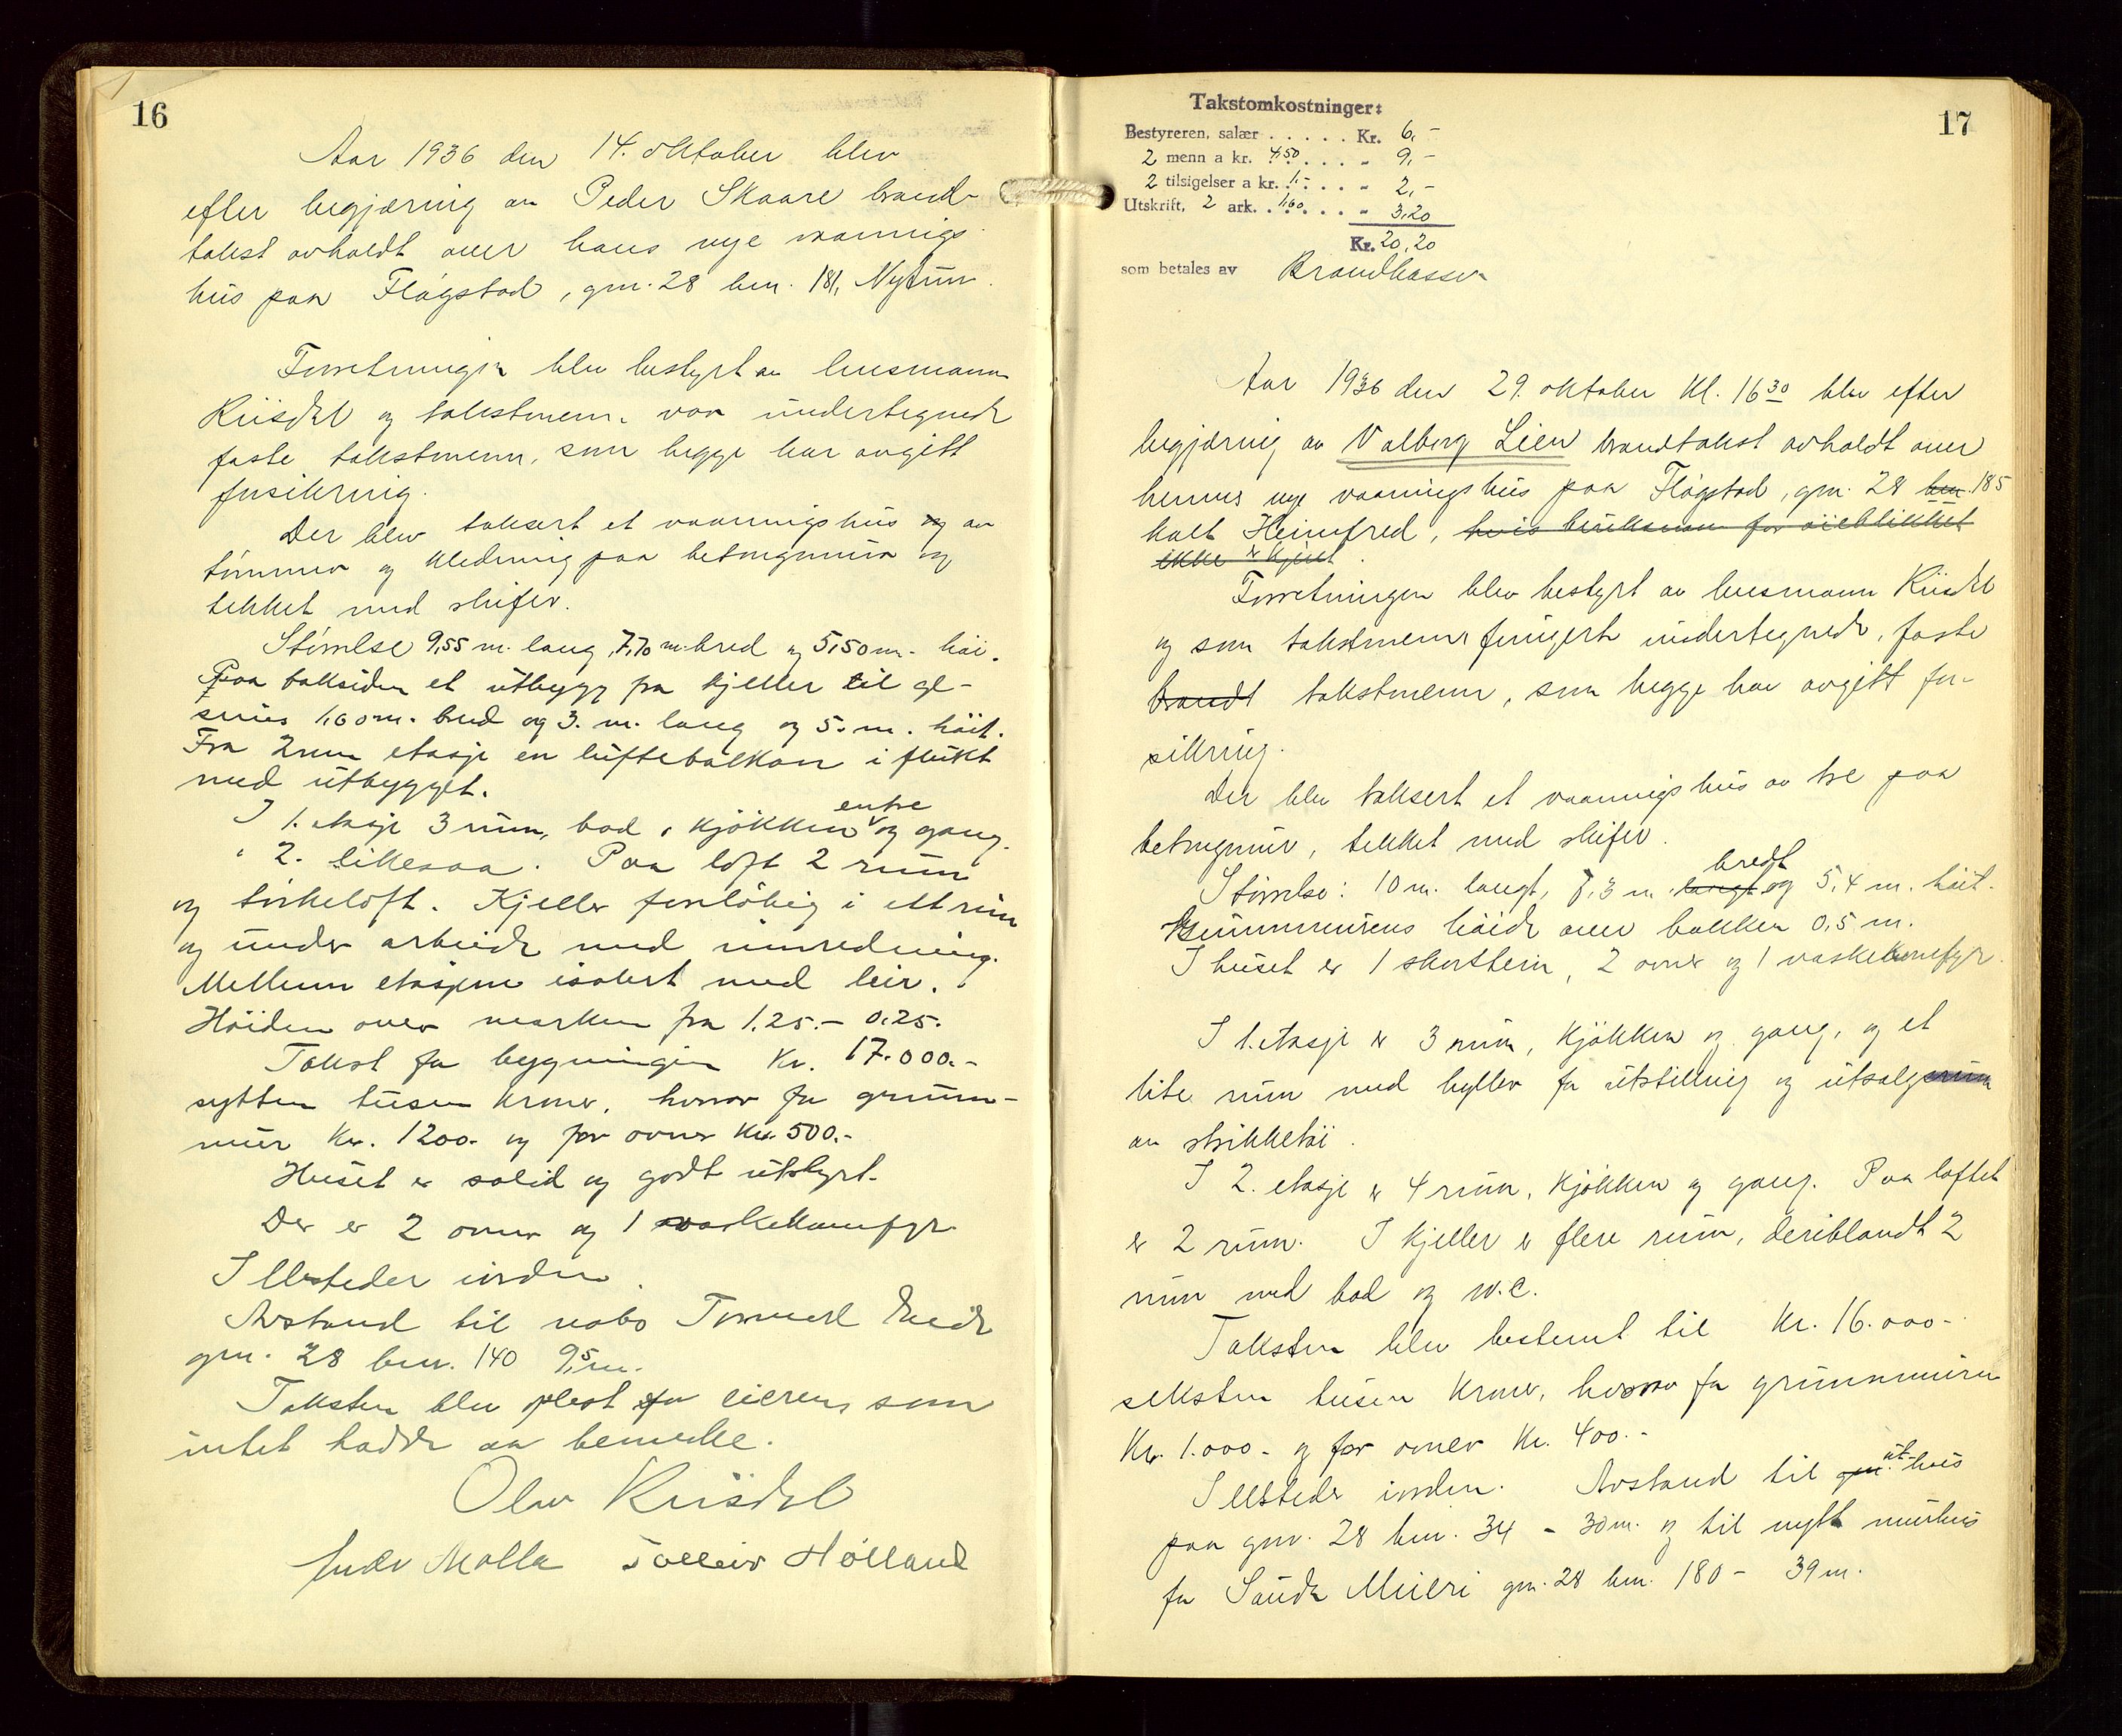 16
Aar 1936 den 14. oktober blev
efter begjæring av Peder Skaare brand-
takst avholdt over hans nye vaanings-
hus paa Fløgstad, gnr. 28 bnr. 181, Nytun.
Forretningen blev bestyrt av lensmann
Riisdal og takstmenn var undertegnede
faste takstmenn, som begge har avgitt
forsikring.
Der blev taksert et vaaningshus av
tømmer og kledning paa betongmur og
tekket med skifer.
Størrelse 9,55 m. lang, 7,70 m. bred og 5,50 m. høi.
Paa baksiden et utbygg fra kjeller til ge-
sims 1,60 m. bred og 3. m. lang og 5. m. høit.
Fra 2nen etasje en luftebalkon i flukt
med utbygget.
entre
I 1. etasje 3 rum, bad, kjøkken og gang.
" 2. likesaa. Paa loft 2 rum
og tørkeloft. Kjeller foreløbig i ett rum
og under arbeide med innredning.
Mellem etasjene isolert med leir.
Høiden over marken fra 1.25.- 0.25.
Takst for bygningen Kr. 17.000.-
sytten tusen kroner, hvorav for grunn-
mur Kr. 1200.- og for ovner Kr. 500.-
Huset er solid og godt utstyrt.
Der er 2 ovner og 1 vaskekomfyr
Illsteder i orden.
Avstand til nabo Tormod Eide
gnr. 28 bnr. 140 9,5 m.
Taksten blev oplest for eieren, som
intet hadde aa bemerke.
Olav Riisdal
Andr Molla Tolleiv Hølland
17
Takstomkostninger:
Bestyreren, salær . . . . . Kr. 6,-
2 menn a kr. 4,50 . . . " 9,-
2 tilsigelser a kr. 1.- . . . " 2,-
Utskrift, 2 ark. . 1,60 . . . " 3,20
Kr. 20,20
som betales av Brandkassen
Aar 1936 den 29. oktober kl. 16 30 blev efter
begjæring av Valborg Lien brandtakst avholdt over
hennes nye vaaningshus paa Fløgstad, gnr. 28 bnr. 185
kalt Heimfred, hvis bruksnavn for øieblikket
ikke er kjent.
Forretningen blev bestyrt av lensmann Riisdal
og som takstmenn fungerte undertegnede, faste
brandt takstmenn, som begge har avgitt for-
sikring.
Der blev taksert et vaaningshus av tre paa
betongmur, tekket med skifer.
bredt
Størrelse: 10 m. langt, 8,3 m. langt og 5,4 m. høit.
Grunnmurens høide over bakken 0,5 m.
I huset er 1 skorstein, 2 ovner og 1 vaskekomfyr.
I 1. etasje er 3 rum, kjøkken og gang, og et
lite rum med hyller for utstilling og utsalgsrum
av strikketøi.
I 2. etasje er 4 rum, kjøkken og gang. Paa loftet
er 2 rum. I kjeller er flere rum, deriblandt 2
rum med bad og w.c.
Taksten blev bestemt til Kr. 16.000.-
seksten tusen kroner, hvorav for grunnmuren
Kr. 1.000.- og for ovner Kr. 400.-
ut-
Illsteder i orden. Avstand til gnr. hus
paa gnr. 28 bnr. 34 - 30 m. og til nytt murhus
for Sauda Meieri gnr. 28 bnr. 180 - 39 m.